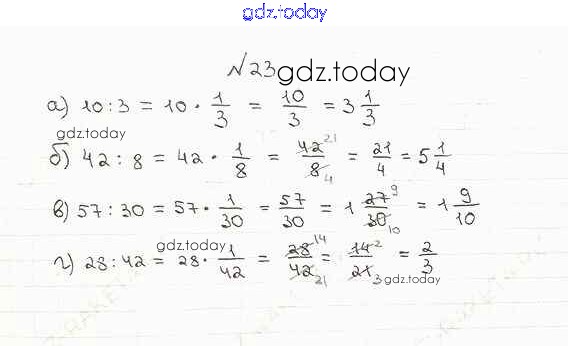 gdz.today
№23 gdz.today
а) 10 : 3 = 10 · 1/3 = 10/3 = 3 1/3
gdz.today
б) 42 : 8 = 42 · 1/8 = 42 21/8 4 = 21/4 = 5 1/4
в) 57 : 30 = 57 · 1/30 = 57/30 = 1 27 9/30 10 = 1 9/10
gdz.today
г) 28 : 42 = 28 · 1/42 = 28 14/42 21 = 14 2/21 3 = 2/3
gdz.today